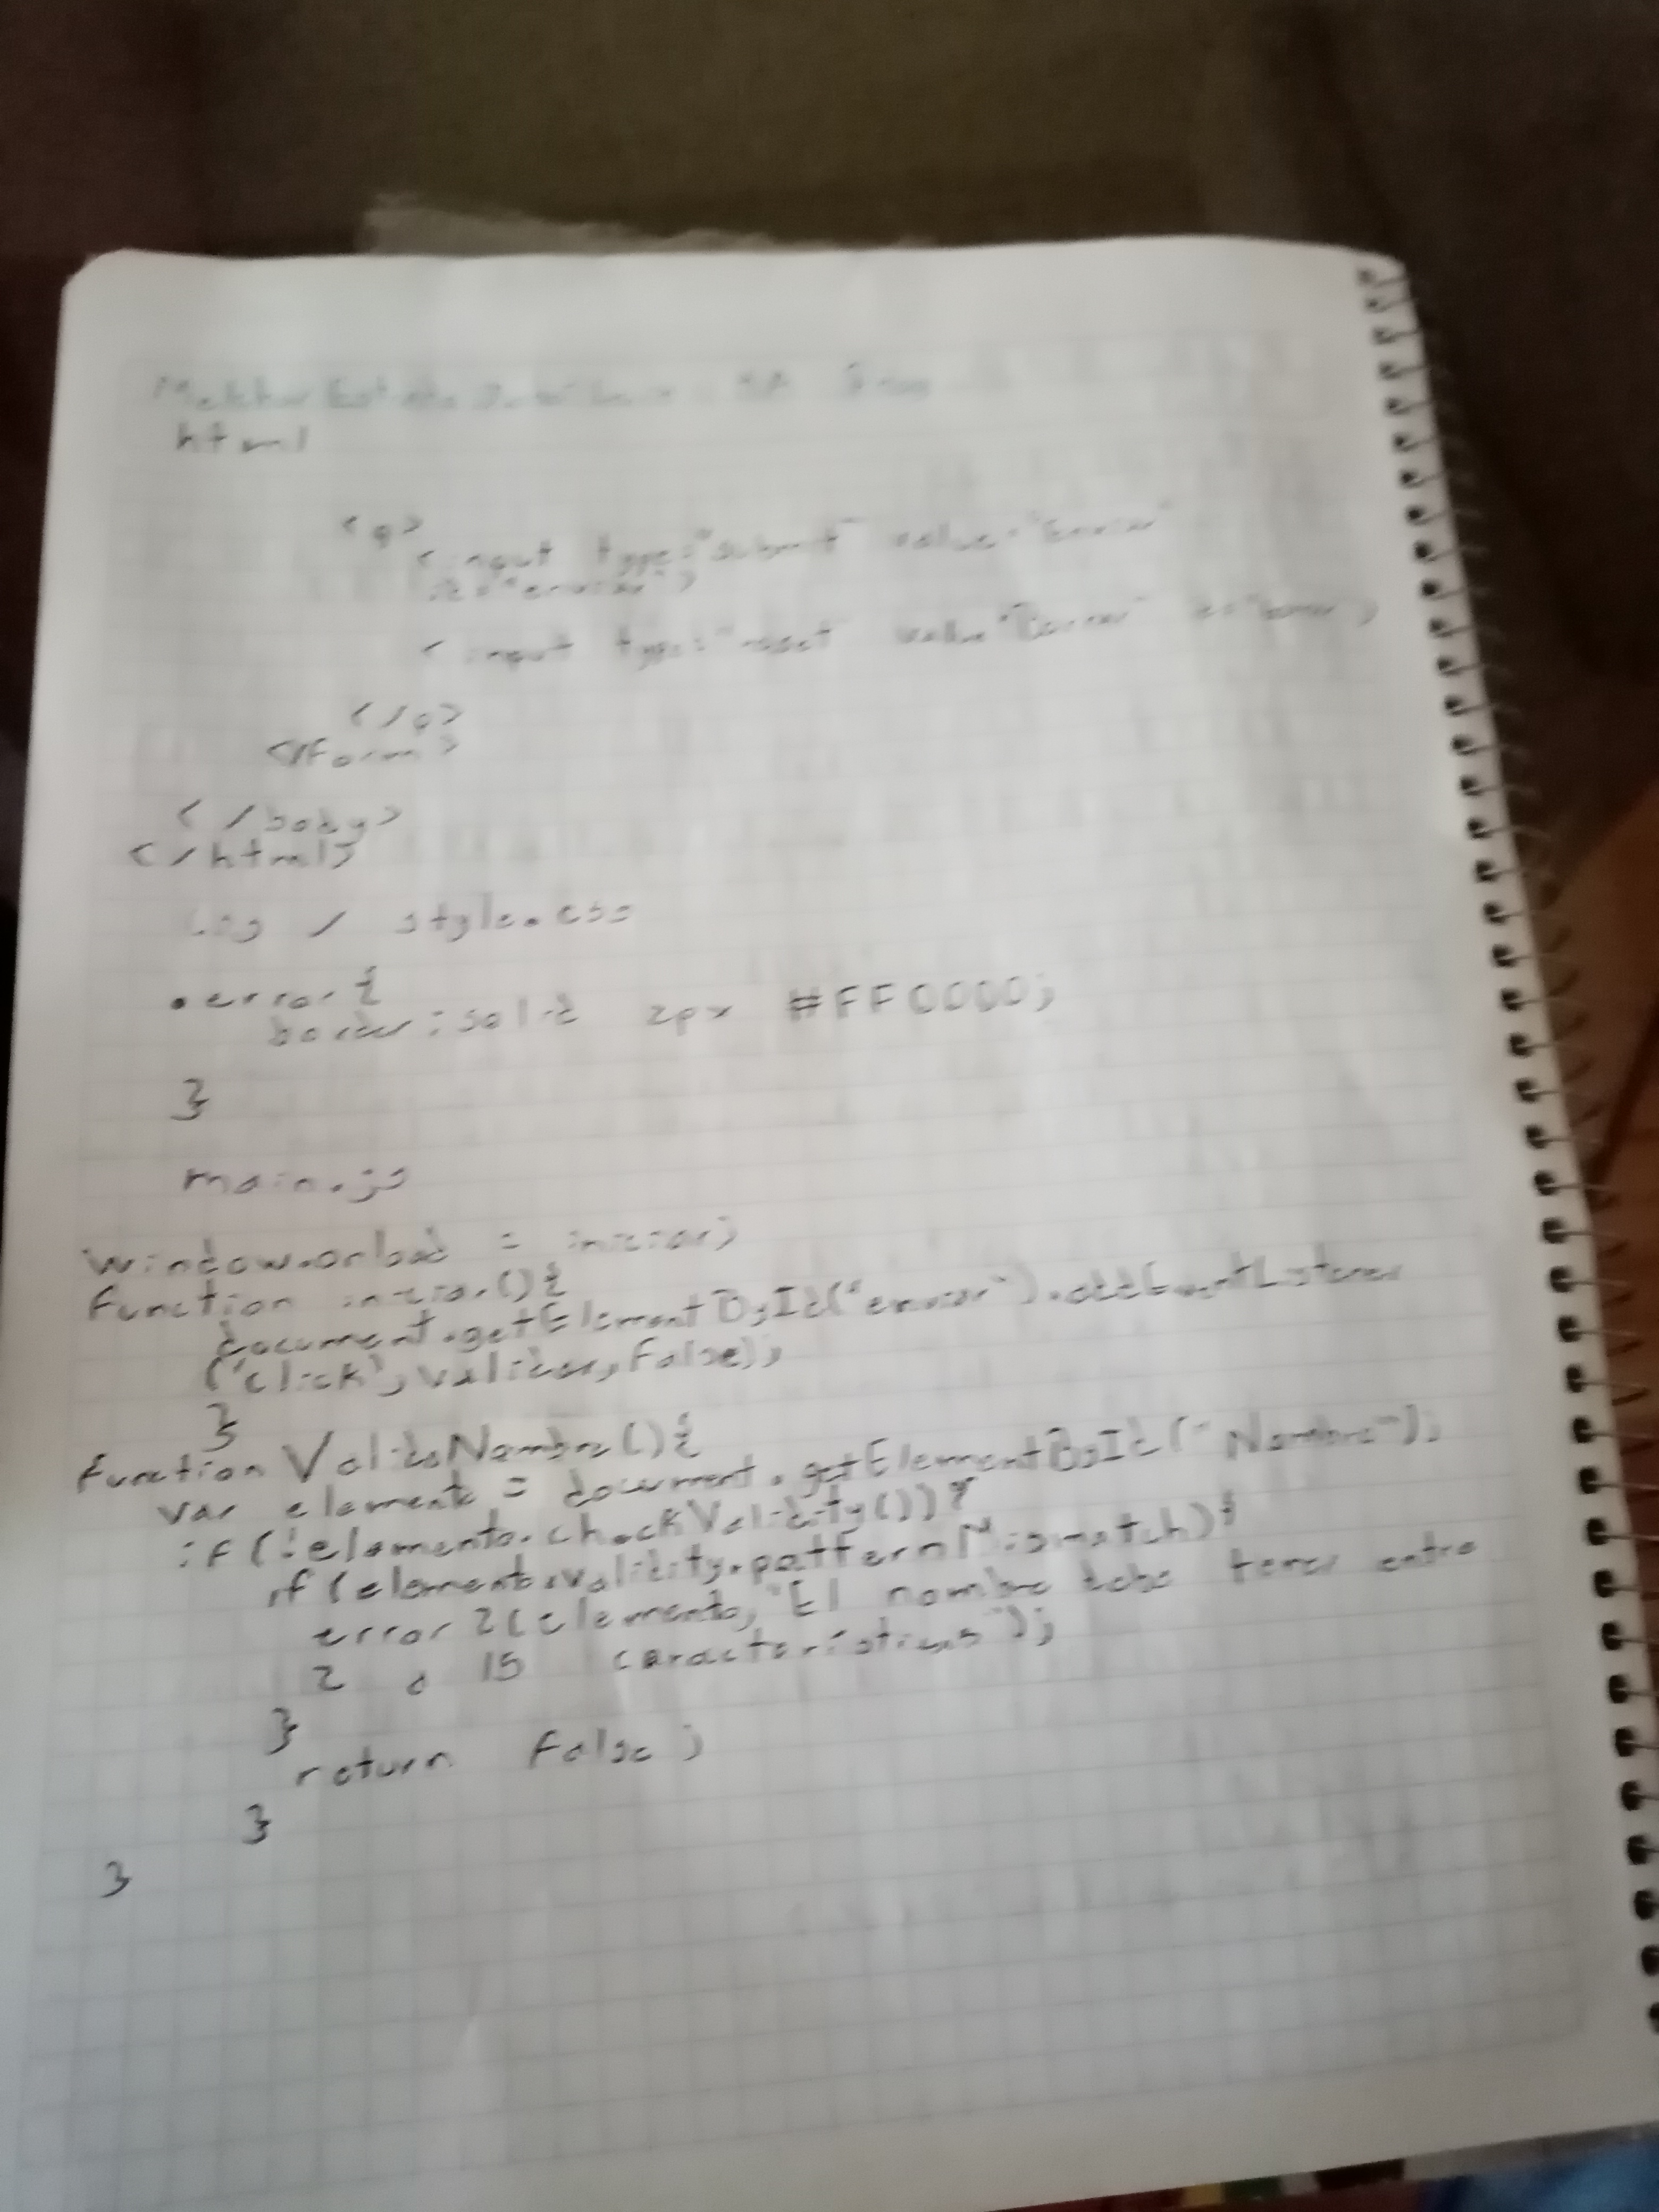 html
<p>
<input type="submit" value="Enviar"
id="enviar">
<input type="reset" value="Borrar" id="borrar">
</p>
</form>
</body>
</html>
css / style.css
.error{
border: solid 2px #FF0000;
}
main.js
window.onload = iniciar;
function iniciar(){
document.getElementById("enviar").addEventListener
('click', validar, false);
}
function ValidaNombre(){
var elemento = document.getElementById("Nombre");
if(!elemento.checkValidity()){
if(elemento.validity.patternMismatch){
error2(elemento, "El nombre debe tener entre
2 a 15 caracteristicas");
}
return false;
}
}